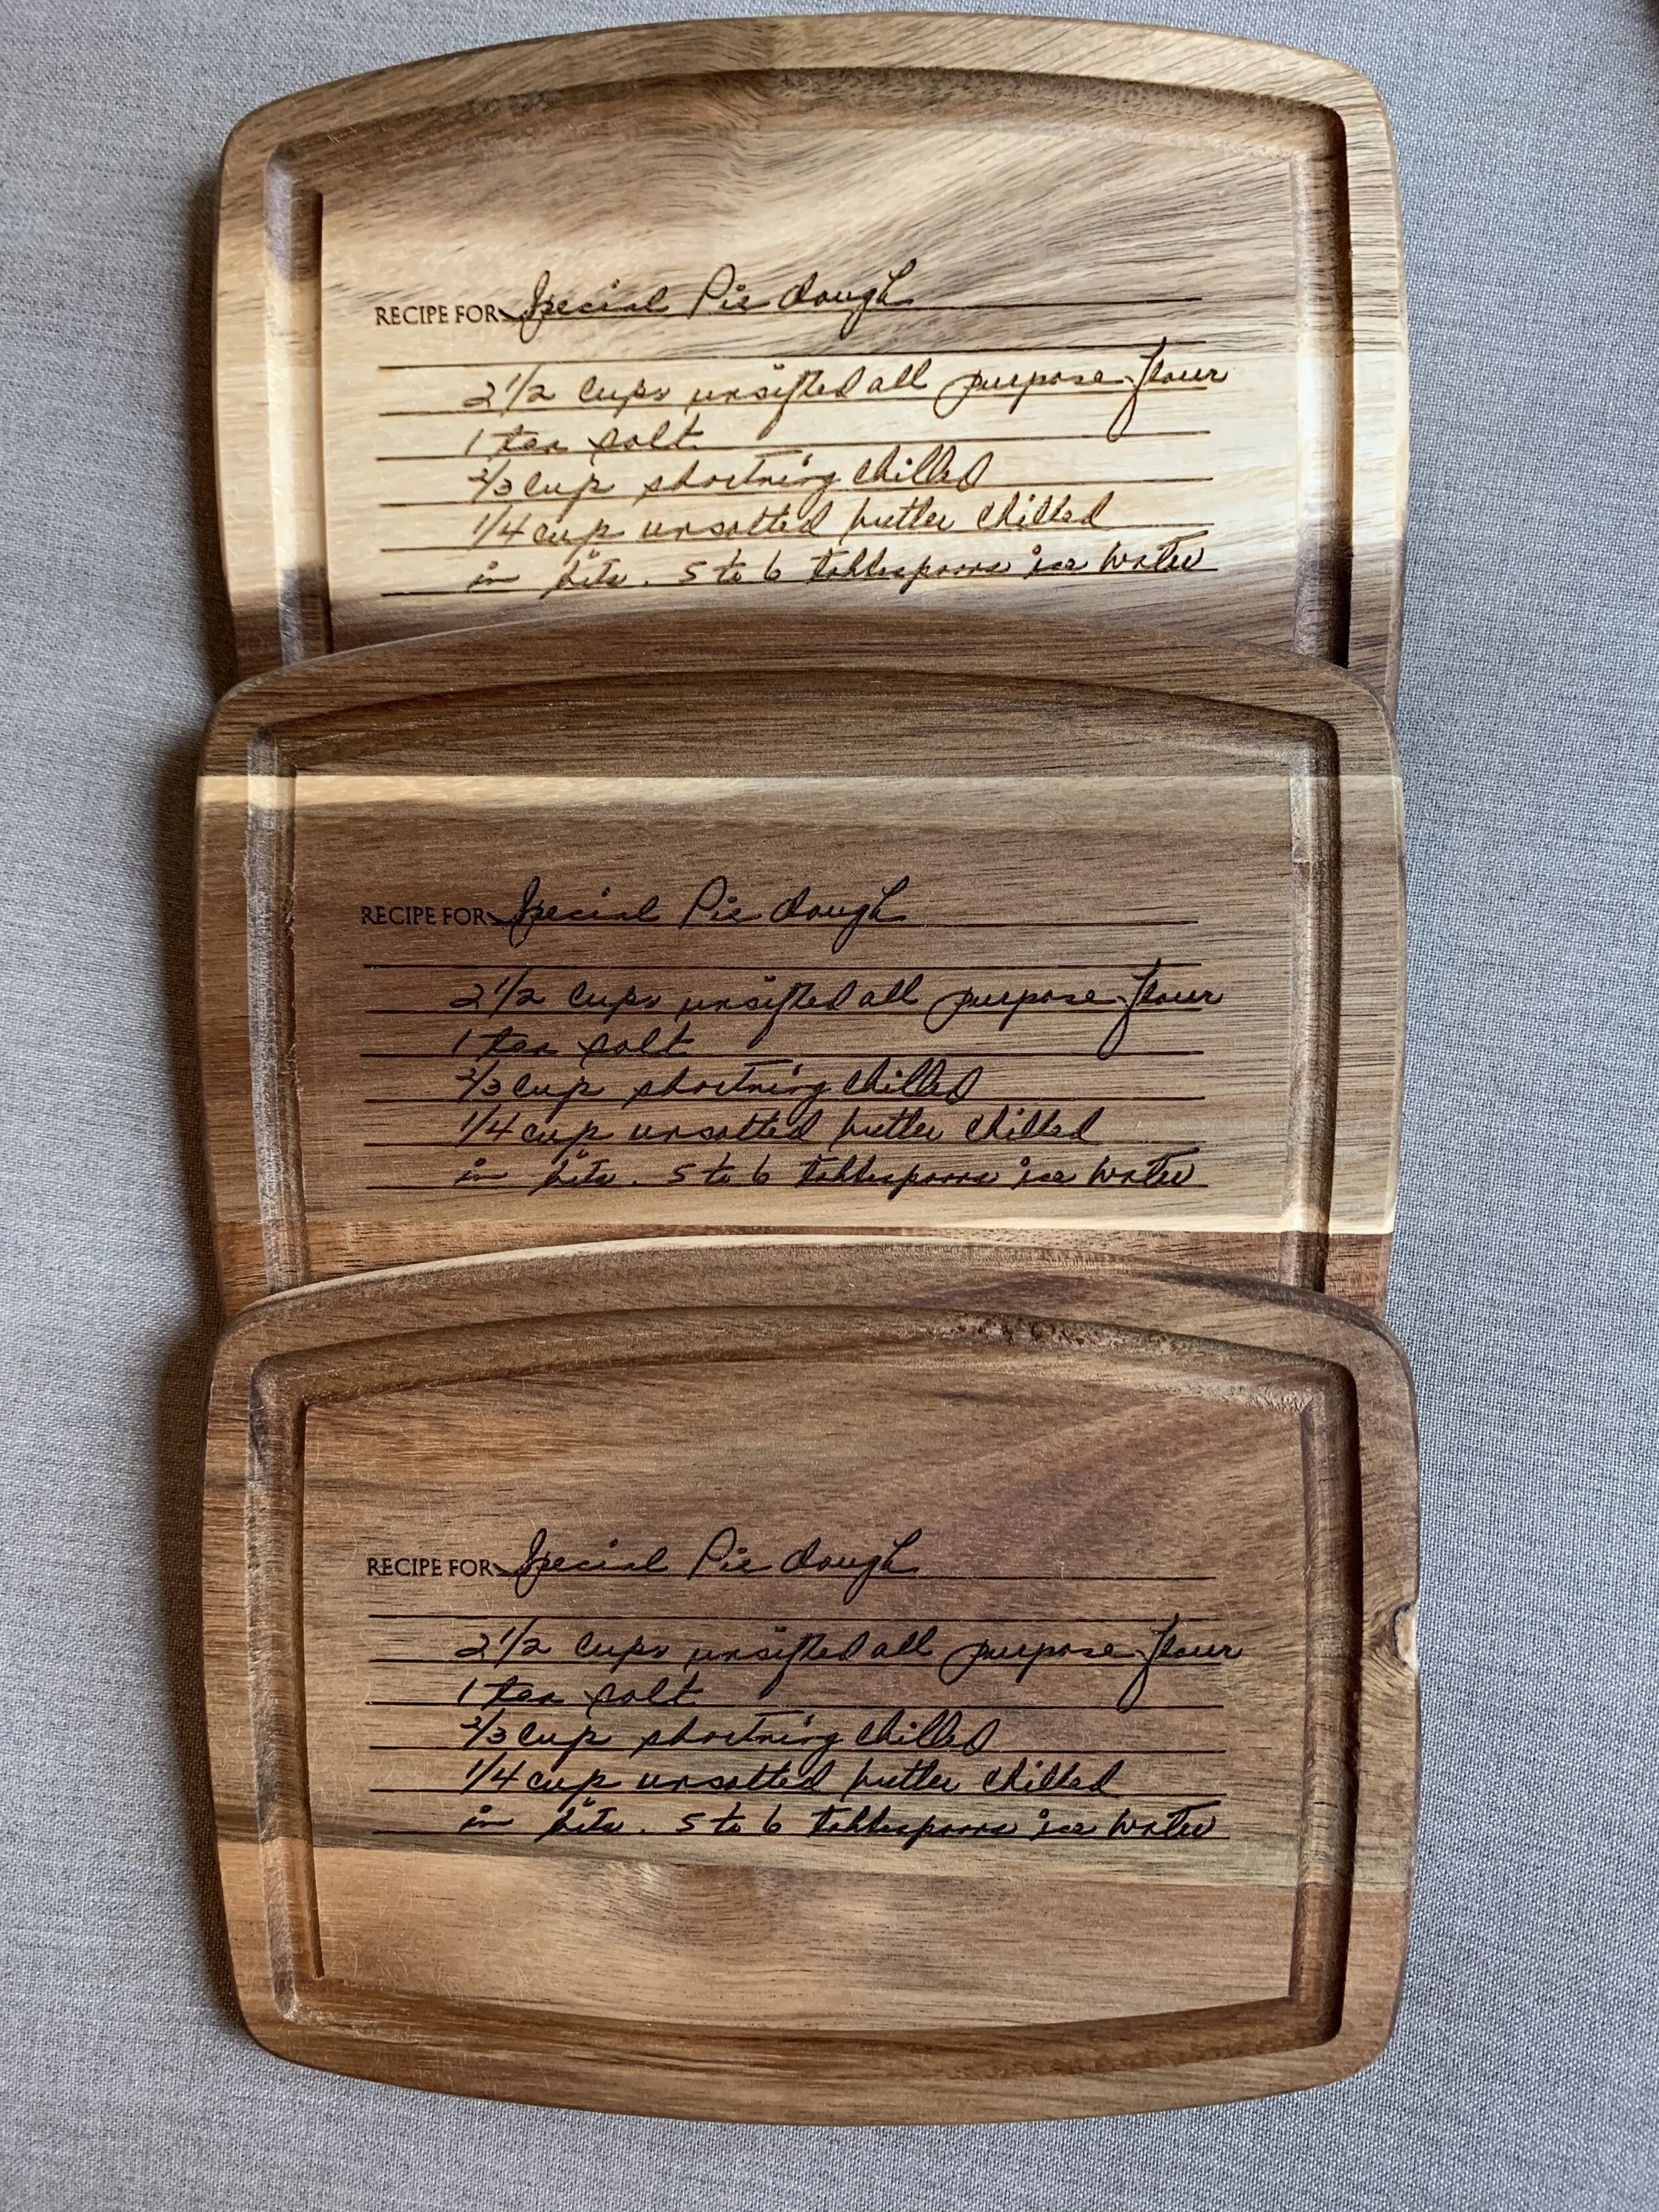 RECIPE FOR Special Pie dough
2 1/2 cups unsifted all purpose flour
1 tea salt
2/3 cup shortning chilled
1/4 cup unsalted butter chilled
in bits. 5 to 6 tablespoons ice water
RECIPE FOR Special Pie dough
2 1/2 cups unsifted all purpose flour
1 tea salt
2/3 cup shortning chilled
1/4 cup unsalted butter chilled
in bits. 5 to 6 tablespoons ice water
RECIPE FOR Special Pie dough
2 1/2 cups unsifted all purpose flour
1 tea salt
2/3 cup shortning chilled
1/4 cup unsalted butter chilled
in bits. 5 to 6 tablespoons ice water